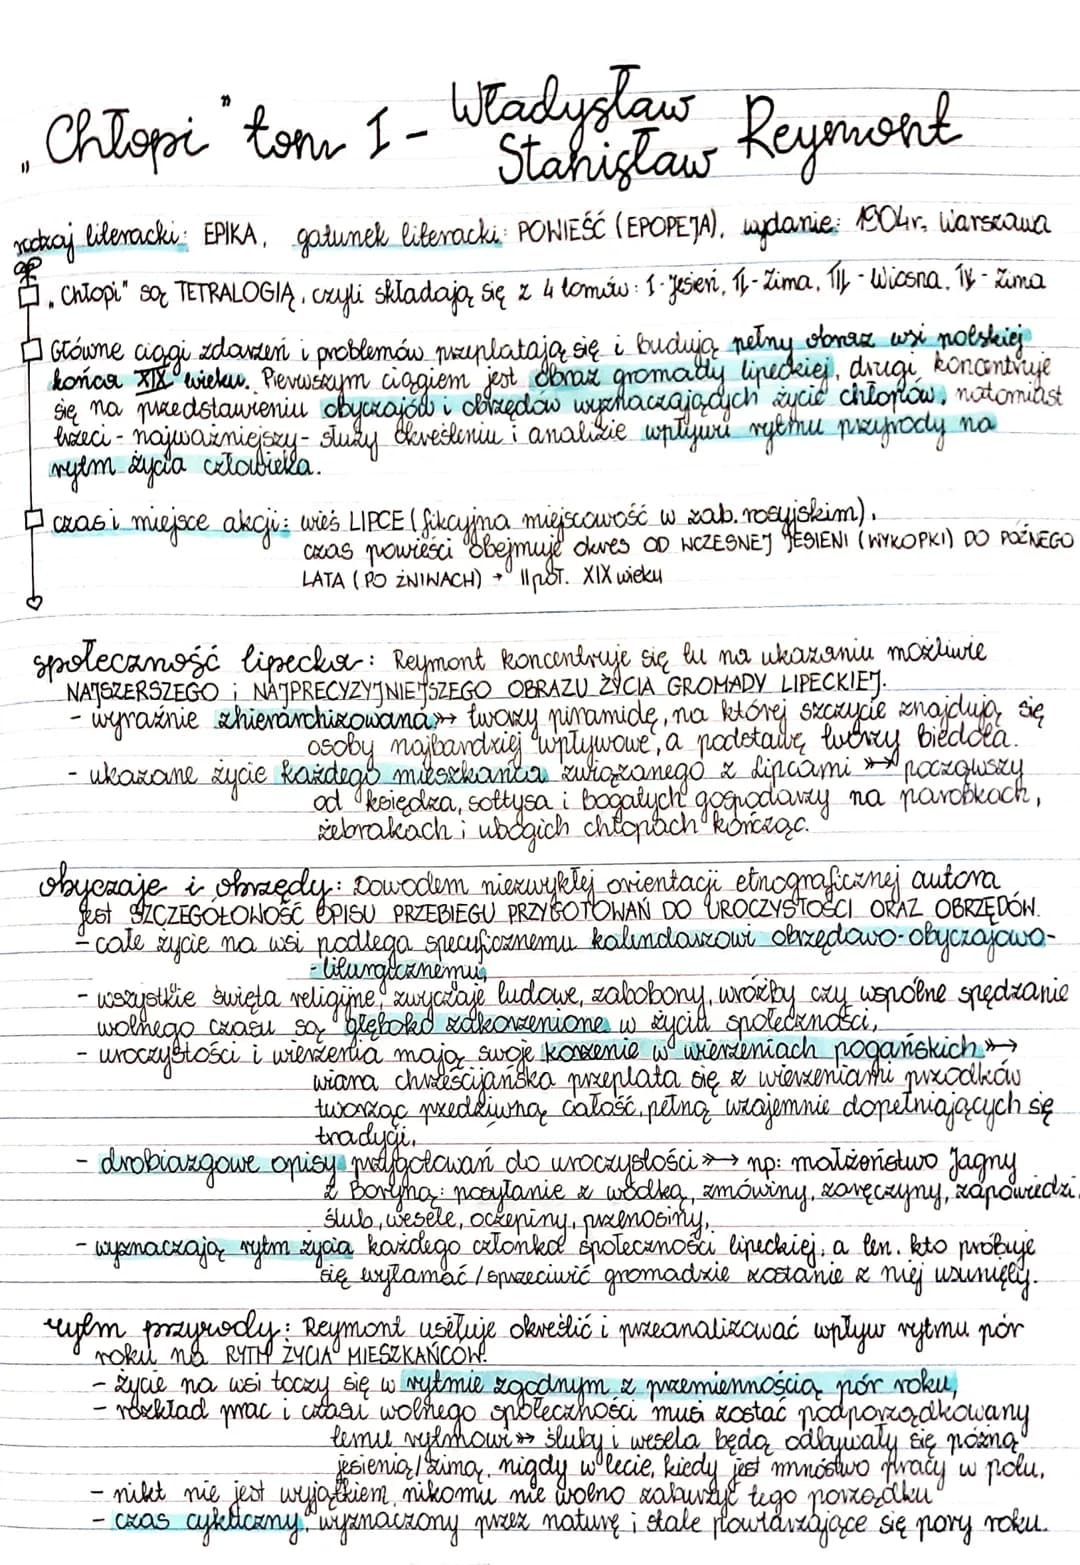 „Chłopi" tom I - Władysław Stanisław Reymont
rodzaj literacki: EPIKA, gatunek literacki: POWIEŚĆ (EPOPEJA), wydanie: 1904r, Warszawa
„Chłopi" są TETRALOGIĄ, czyli składają się z 4 tomów: I-Jesień, II-Zima, III-Wiosna, IV-Zima
Główne ciągi zdarzeń i problemów przeplatają się i budują pełny obraz wsi polskiej
końca XIX wieku. Pierwszym ciągiem jest obraz gromady lipeckiej, drugi koncentruje
się na przedstawieniu obyczajów i obrzędów wyznaczających życie chłopów, natomiast
trzeci - najważniejszy - służy określeniu i analizie wpływu rytmu przyrody na
rytm życia człowieka.
czas i miejsce akcji: wieś LIPCE (fikcyjna miejscowość w zab. rosyjskim),
czas powieści obejmuje okres OD WCZESNEJ JESIENI (WYKOPKI) DO PÓŹNEGO
LATA (PO ŻNIWACH) → II poł. XIX wieku
społeczność lipecka: Reymont koncentruje się tu na ukazaniu możliwie
NAJSZERSZEGO i NAJPRECYZYJNIEJSZEGO OBRAZU ŻYCIA GROMADY LIPECKIEJ.
- wyraźnie zhierarchizowana →→ tworzy piramidę, na której szczycie znajdują się
osoby najbardziej wpływowe, a podstawę tworzy biedota.
- ukazane życie każdego mieszkańca związanego z Lipcami →→ począwszy
od księdza, sołtysa i bogatych gospodarzy na parobkach,
żebrakach i ubogich chłopach kończąc.
obyczaje i obrzędy: Dowodem niezwykłej orientacji etnograficznej autora
jest SZCZEGÓŁOWOŚĆ OPISU PRZEBIEGU PRZYGOTOWAŃ DO UROCZYSTOŚCI ORAZ OBRZĘDÓW.
- całe życie na wsi podlega specyficznemu kalindaszowi obrzędowo-obyczajowo-
-liturgicznemu,
- wszystkie święta religijne, zwyczaje ludowe, zabobony, wróżby czy wspólne spędzanie
wolnego czasu są głęboko zakorzenione w życiu społeczności,
- uroczystości i wierzenia mają swoje korzenie w wierzeniach pogańskich →→
wiara chrześcijańska przeplata się z wierzeniami przodków
tworząc przedziwną całość, pełną wzajemnie dopełniających się
tradycji,
- drobiazgowe opisy przygotowań do uroczystości →→ np: małżeństwo Jagny
z Boryną: posyłanie z wódką, zmówiny, zaręczyny, zapowiedzi,
ślub, wesele, oczepiny, przenosiny,
- wyznaczają rytm życia każdego członka społeczności lipeckiej, a ten, kto próbuje
się wyłamać/sprzeciwić gromadzie zostanie z niej usunięty.
rytm przyrody: Reymont usiłuje określić i przeanalizować wpływ rytmu pór
roku na RYTM ŻYCIA MIESZKAŃCÓW.
- życie na wsi toczy się w rytmie zgodnym z przemiennością pór roku,
- rozkład prac i czasu wolnego społeczności musi zostać podporządkowany
temu rytmowi →→ śluby i wesela będą odbywały się późną
jesienią/zimą, nigdy w lecie, kiedy jest mnóstwo pracy w polu,
- nikt nie jest wyjątkiem, nikomu nie wolno zaburzyć tego porządku
- czas cykliczny, wyznaczony przez naturę i stale powtarzające się pory roku.